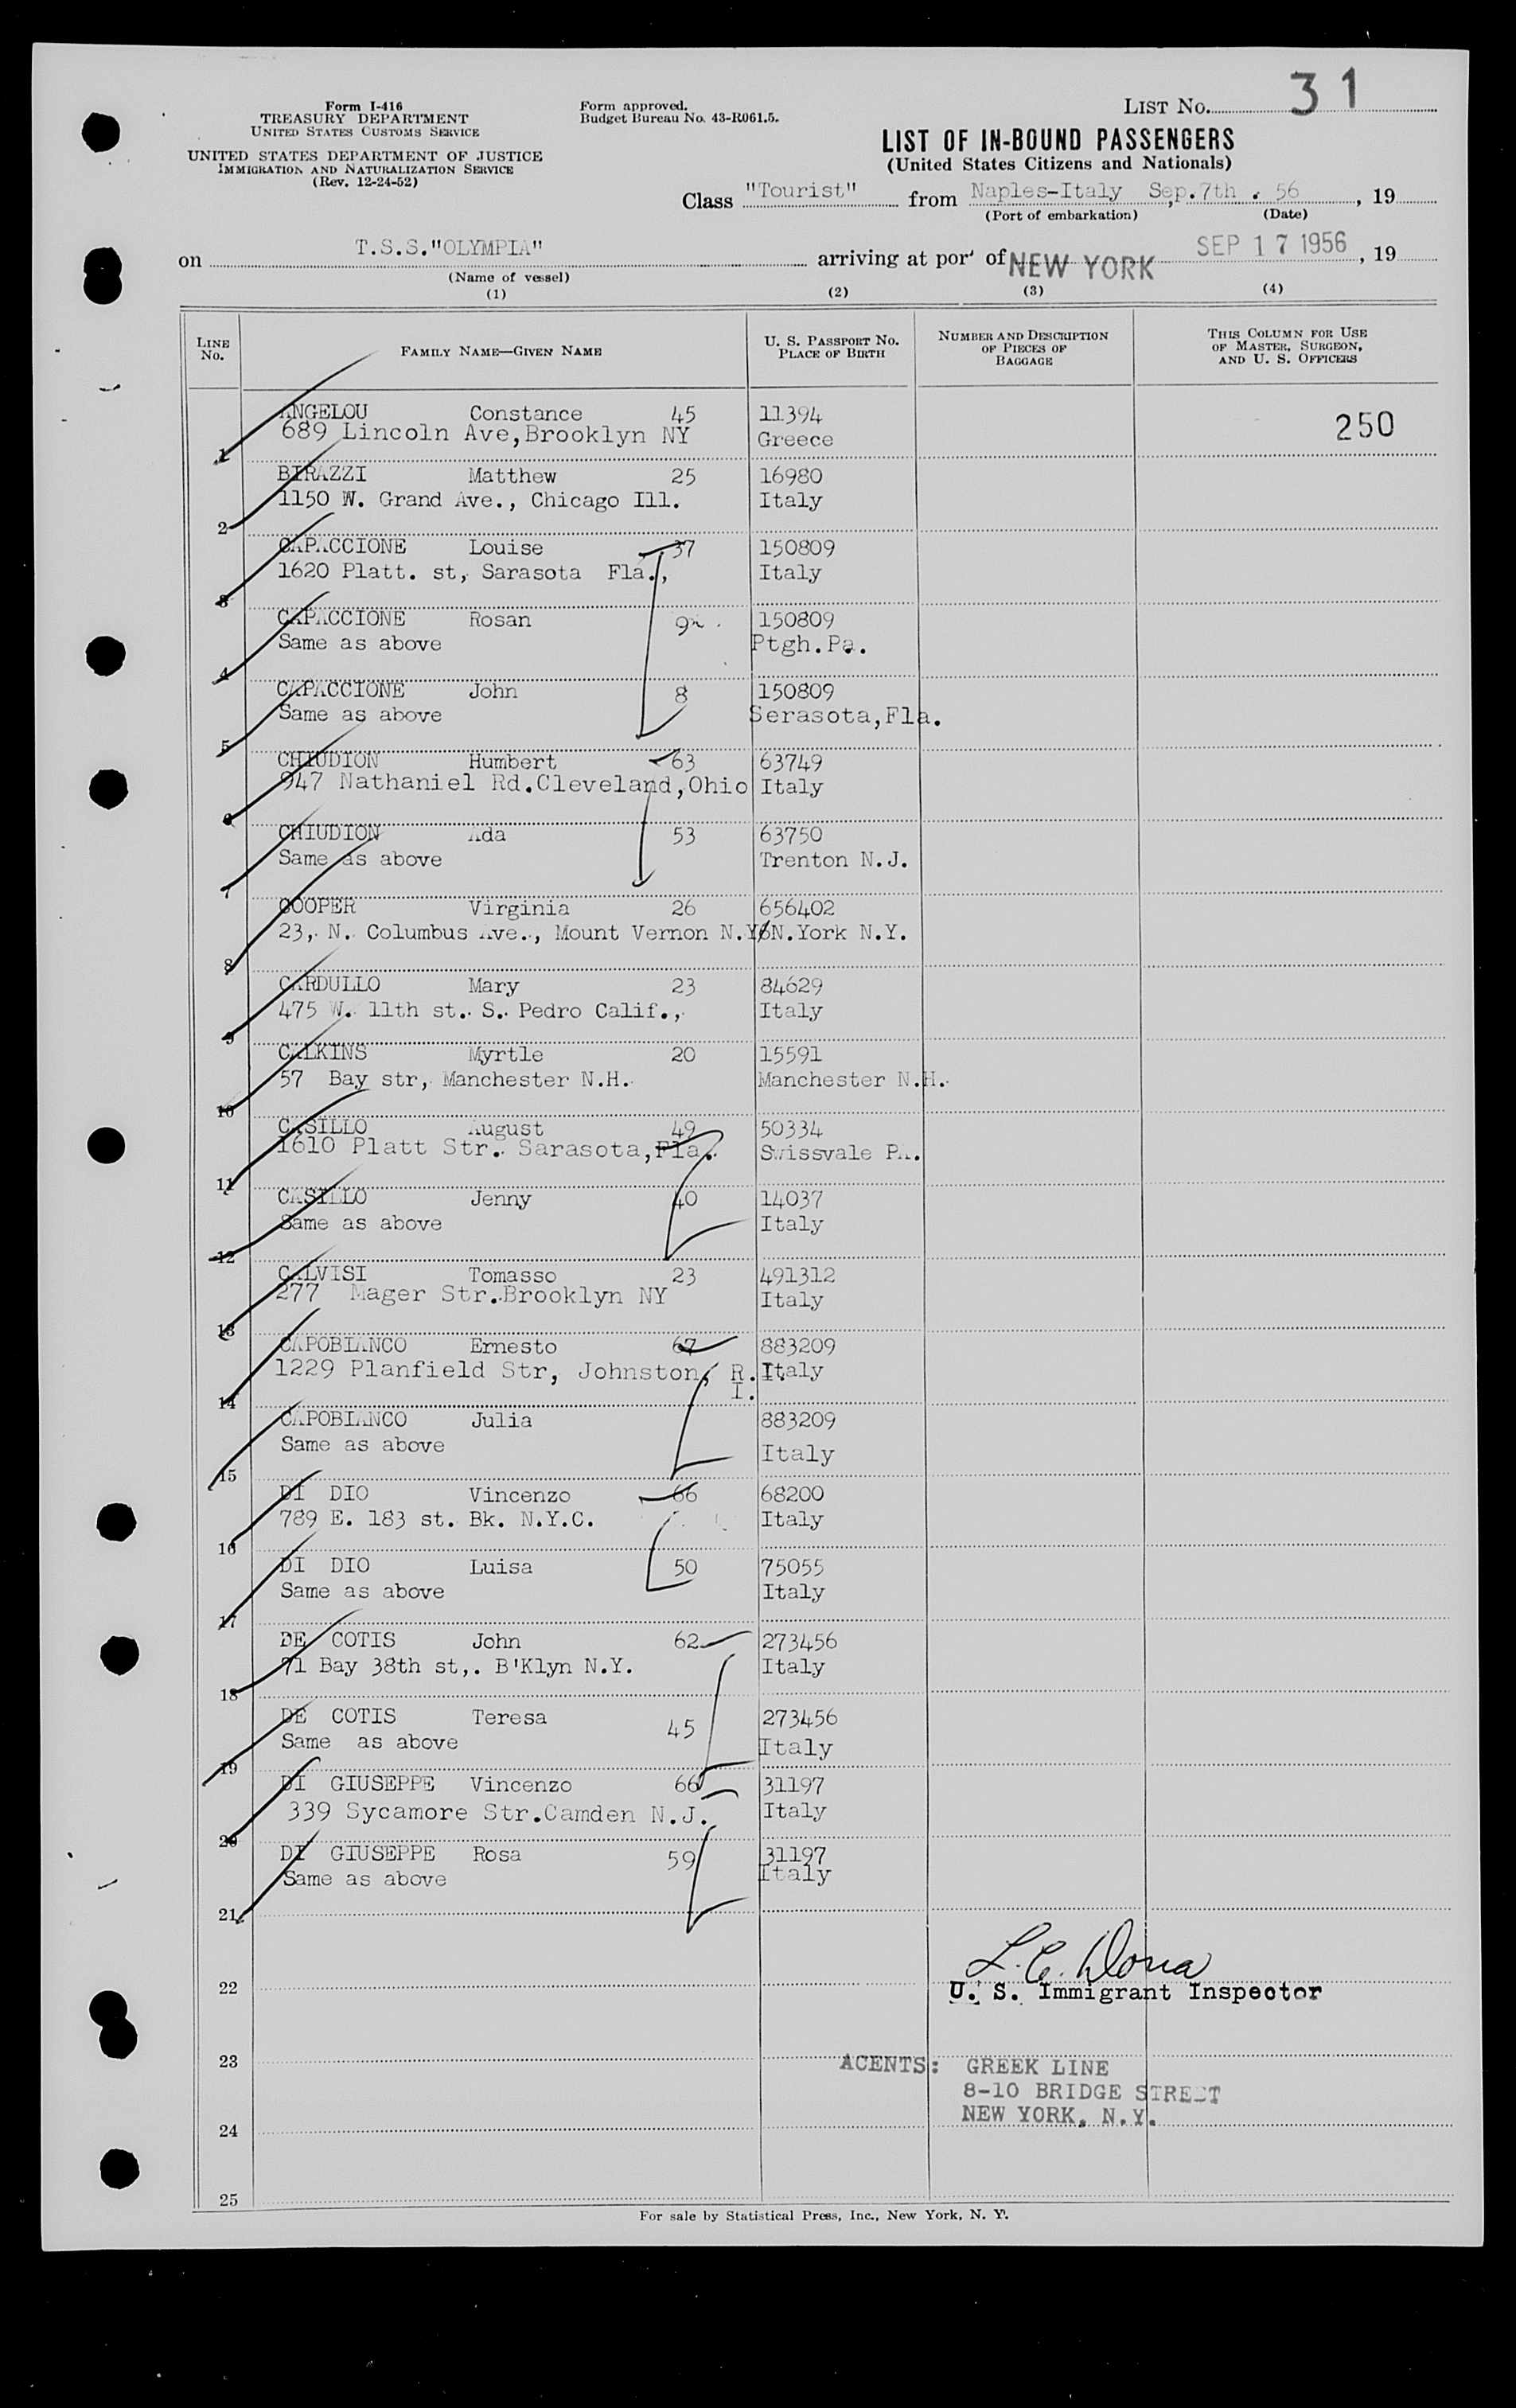 Form I-416
TREASURY DEPARTMENT
UNITED STATES CUSTOMS SERVICE
UNITED STATES DEPARTMENT OF JUSTICE
IMMIGRATION AND NATURALIZATION SERVICE
(Rev. 12-24-52)
Form approved.
Budget Bureau No. 43-R061.5.
LIST No. 31
LIST OF IN-BOUND PASSENGERS
(United States Citizens and Nationals)
Class "Tourist" from Naples-Italy Sep.7th . 56, 19
(Port of embarkation) (Date)
on T.S.S."OLYMPIA" arriving at port of NEW YORK SEP 17 1956, 19
(Name of vessel)
(1) (2) (3) (4)
LINE No. FAMILY NAME—GIVEN NAME U. S. PASSPORT No. PLACE OF BIRTH NUMBER AND DESCRIPTION OF PIECES OF BAGGAGE THIS COLUMN FOR USE OF MASTER, SURGEON, AND U. S. OFFICERS
ANGELOU Constance 45 11394 250
1 689 Lincoln Ave,Brooklyn NY Greece
BIRAZZI Matthew 25 16980
2 1150 W. Grand Ave., Chicago Ill. Italy
CAPACCIONE Louise 37 150809
3 1620 Platt. st, Sarasota Fla., Italy
CAPACCIONE Rosan 9 150809
4 Same as above Ptgh.Pa.
CAPACCIONE John 8 150809
5 Same as above Serasota,Fla.
CHIUDION Humbert 63 63749
6 947 Nathaniel Rd.Cleveland,Ohio Italy
CHIUDION Ada 53 63750
7 Same as above Trenton N.J.
COOPER Virginia 26 656402
8 23, N. Columbus Ave., Mount Vernon N.Y. N.York N.Y.
CARDULLO Mary 23 84629
9 475 W. 11th st. S. Pedro Calif., Italy
CALKINS Myrtle 20 15591
10 57 Bay str, Manchester N.H. Manchester N.H.
CASILLO August 49 50334
11 1610 Platt Str. Sarasota,Fla. Swissvale PA.
CASILLO Jenny 40 14037
12 Same as above Italy
CALVISI Tomasso 23 491312
13 277 Mager Str.Brooklyn NY Italy
CAPOBIANCO Ernesto 67 883209
14 1229 Planfield Str, Johnston, R.I. Italy
CAPOBIANCO Julia 883209
15 Same as above Italy
DI DIO Vincenzo 66 68200
16 789 E. 183 st. Bk. N.Y.C. Italy
DI DIO Luisa 50 75055
17 Same as above Italy
DE COTIS John 62 273456
18 71 Bay 38th st,. B'Klyn N.Y. Italy
DE COTIS Teresa 45 273456
19 Same as above Italy
DI GIUSEPPE Vincenzo 66 31197
20 339 Sycamore Str.Camden N.J. Italy
DI GIUSEPPE Rosa 59 31197
21 Same as above Italy
L. C. Doria
22 U. S. Immigrant Inspector
23 AGENTS: GREEK LINE
8-10 BRIDGE STREET
24 NEW YORK, N.Y.
25
For sale by Statistical Press, Inc., New York, N. Y.